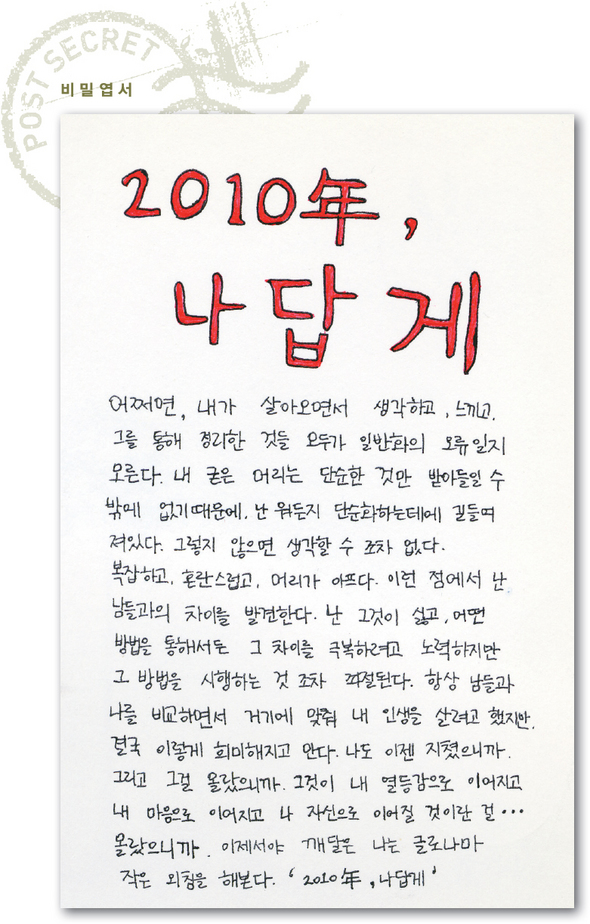 POST SECRET
비밀엽서
2010年,
나답게
어쩌면, 내가 살아오면서 생각하고, 느끼고,
그를 통해 정리한 것들 모두가 일반화의 오류일지
모른다. 내 굳은 머리는 단순한 것만 받아들일 수
밖에 없기때문에. 난 뭐든지 단순화하는데에 길들여
져있다. 그렇지 않으면 생각할 수 조차 없다.
복잡하고, 혼란스럽고, 머리가 아프다. 이런 점에서 난
남들과의 차이를 발견한다. 난 그것이 싫고, 어떤
방법을 통해서든 그 차이를 극복하려고 노력하지만
그 방법을 시행하는 것 조차 좌절된다. 항상 남들과
나를 비교하면서 거기에 맞춰 내 인생을 살려고 했지만,
결국 이렇게 희미해지고 만다. 나도 이젠 지쳤으니까.
그리고 그걸 몰랐으니까. 그것이 내 열등감으로 이어지고
내 마음으로 이어지고 나 자신으로 이어질 것이란 걸...
몰랐으니까. 이제서야 깨달은 나는 글로나마
작은 외침을 해본다. '2010年, 나답게'